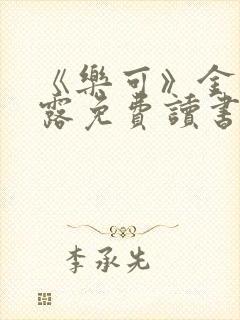 《樂可》全
露免費讀書
李承先